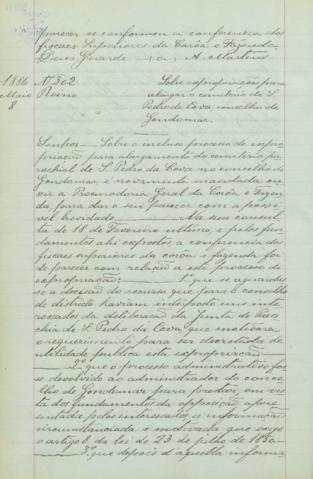 parecer se conformou a conferencia dos
fiscaes superiores da Corôa e Fazenda.
Deus Guarde (a) A. Martens
1886 Nº 302 Sobre expropriação para
Maio Reino alargar o cemiterio de S.
8 Pedro da Cova, concelho de
Gondomar.
Senhor — Sobre o incluso processo de expro-
priação para alargamento do cemiterio paro-
chial de S. Pedro da Cova no concelho de
Gondomar, é novamente mandada ou-
vir a Procuradoria Geral da Corôa e Fazen-
da para dar o seu parecer com a possi-
vel brevidade. — Na sua consul-
ta de 18 de Fevereiro ultimo, e pelos fun-
damentos ahi expostos, a conferencia dos
fiscaes superiores da corôa e fazenda foi
de parecer com relação a este processo de
expropriação: — 1º que se aguardas-
se a decisão do recurso que para o conselho
de districto haviam interposto uns inte-
ressados da deliberação da Junta de Paro-
chia de S. Pedro da Cova, que motivára
o requerimento para ser decretada de
utilidade publica esta expropriação.
— 2º que o processo administrativo fos-
se devolvido ao administrador do conce-
lho de Gondomar para prestar, em vis-
ta dos fundamentos da opposição apre-
sentada pelos interessados, a informação
circumstanciada e motivada que exige
o artigo 8 da lei de 23 de julho de 1850.
— 3º que depois d'aquella informa